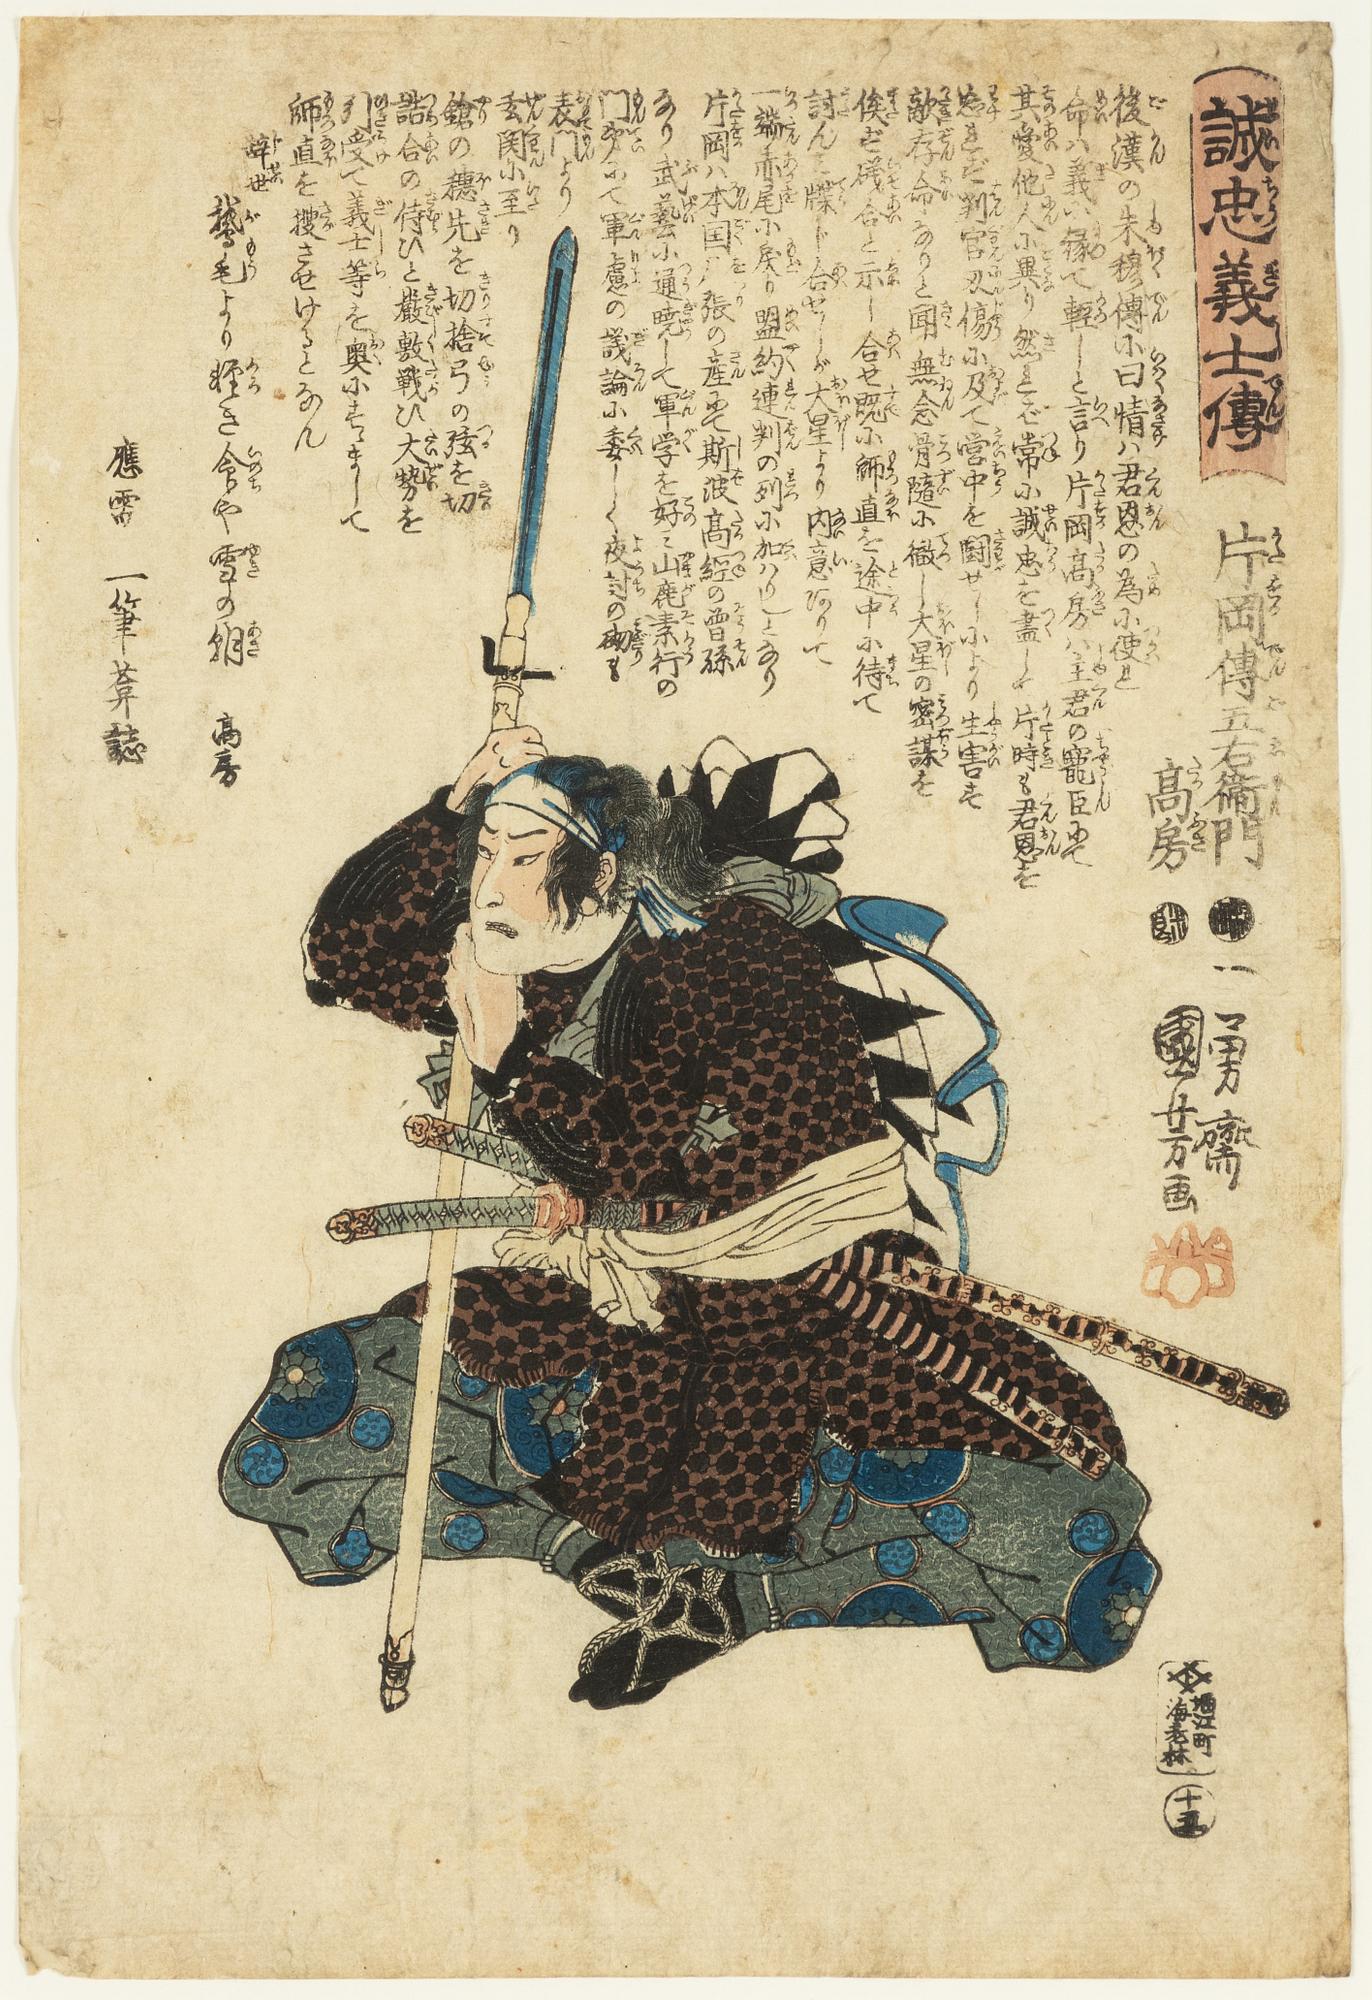 誠忠義士傳
片岡傳五右衞門
高房
一勇齋
國芳画
後漢の朱穆傳に曰情ハ君恩の為に使ハれ
命ハ義に縁て軽しと言り片岡高房ハ主君の寵臣にて
其愛他人に異り然れど常に誠忠を盡して片時も君恩を
忘れず判官刃傷に及て営中を鬧せしにより生害す
敵存命なりと聞無念骨隨に徹し大星の密謀を
俟ず礒合と示し合せ既に師直を途中に待て
討んと牒じ合せしが大星より内意ありて
一端赤尾に戻り盟約連判の列に加ハりしとなり
片岡ハ本国尾張の産にて斯波高経の曽孫
なり武藝に通暁して軍学を好ミ山鹿素行の
門弟にて軍慮の議論に委しく夜討の砌も
表門より
玄関に至り
鎗の穂先を切捨弓の弦を切
詰合の侍ひと厳敷戦ひ大勢を
引受て義士等を奥にすゝまして
師直を捜させけるとなん
辞世
鵞毛より軽き命や雪の朝 高房
應需 一筆葊誌
堀江町
海老林
十五